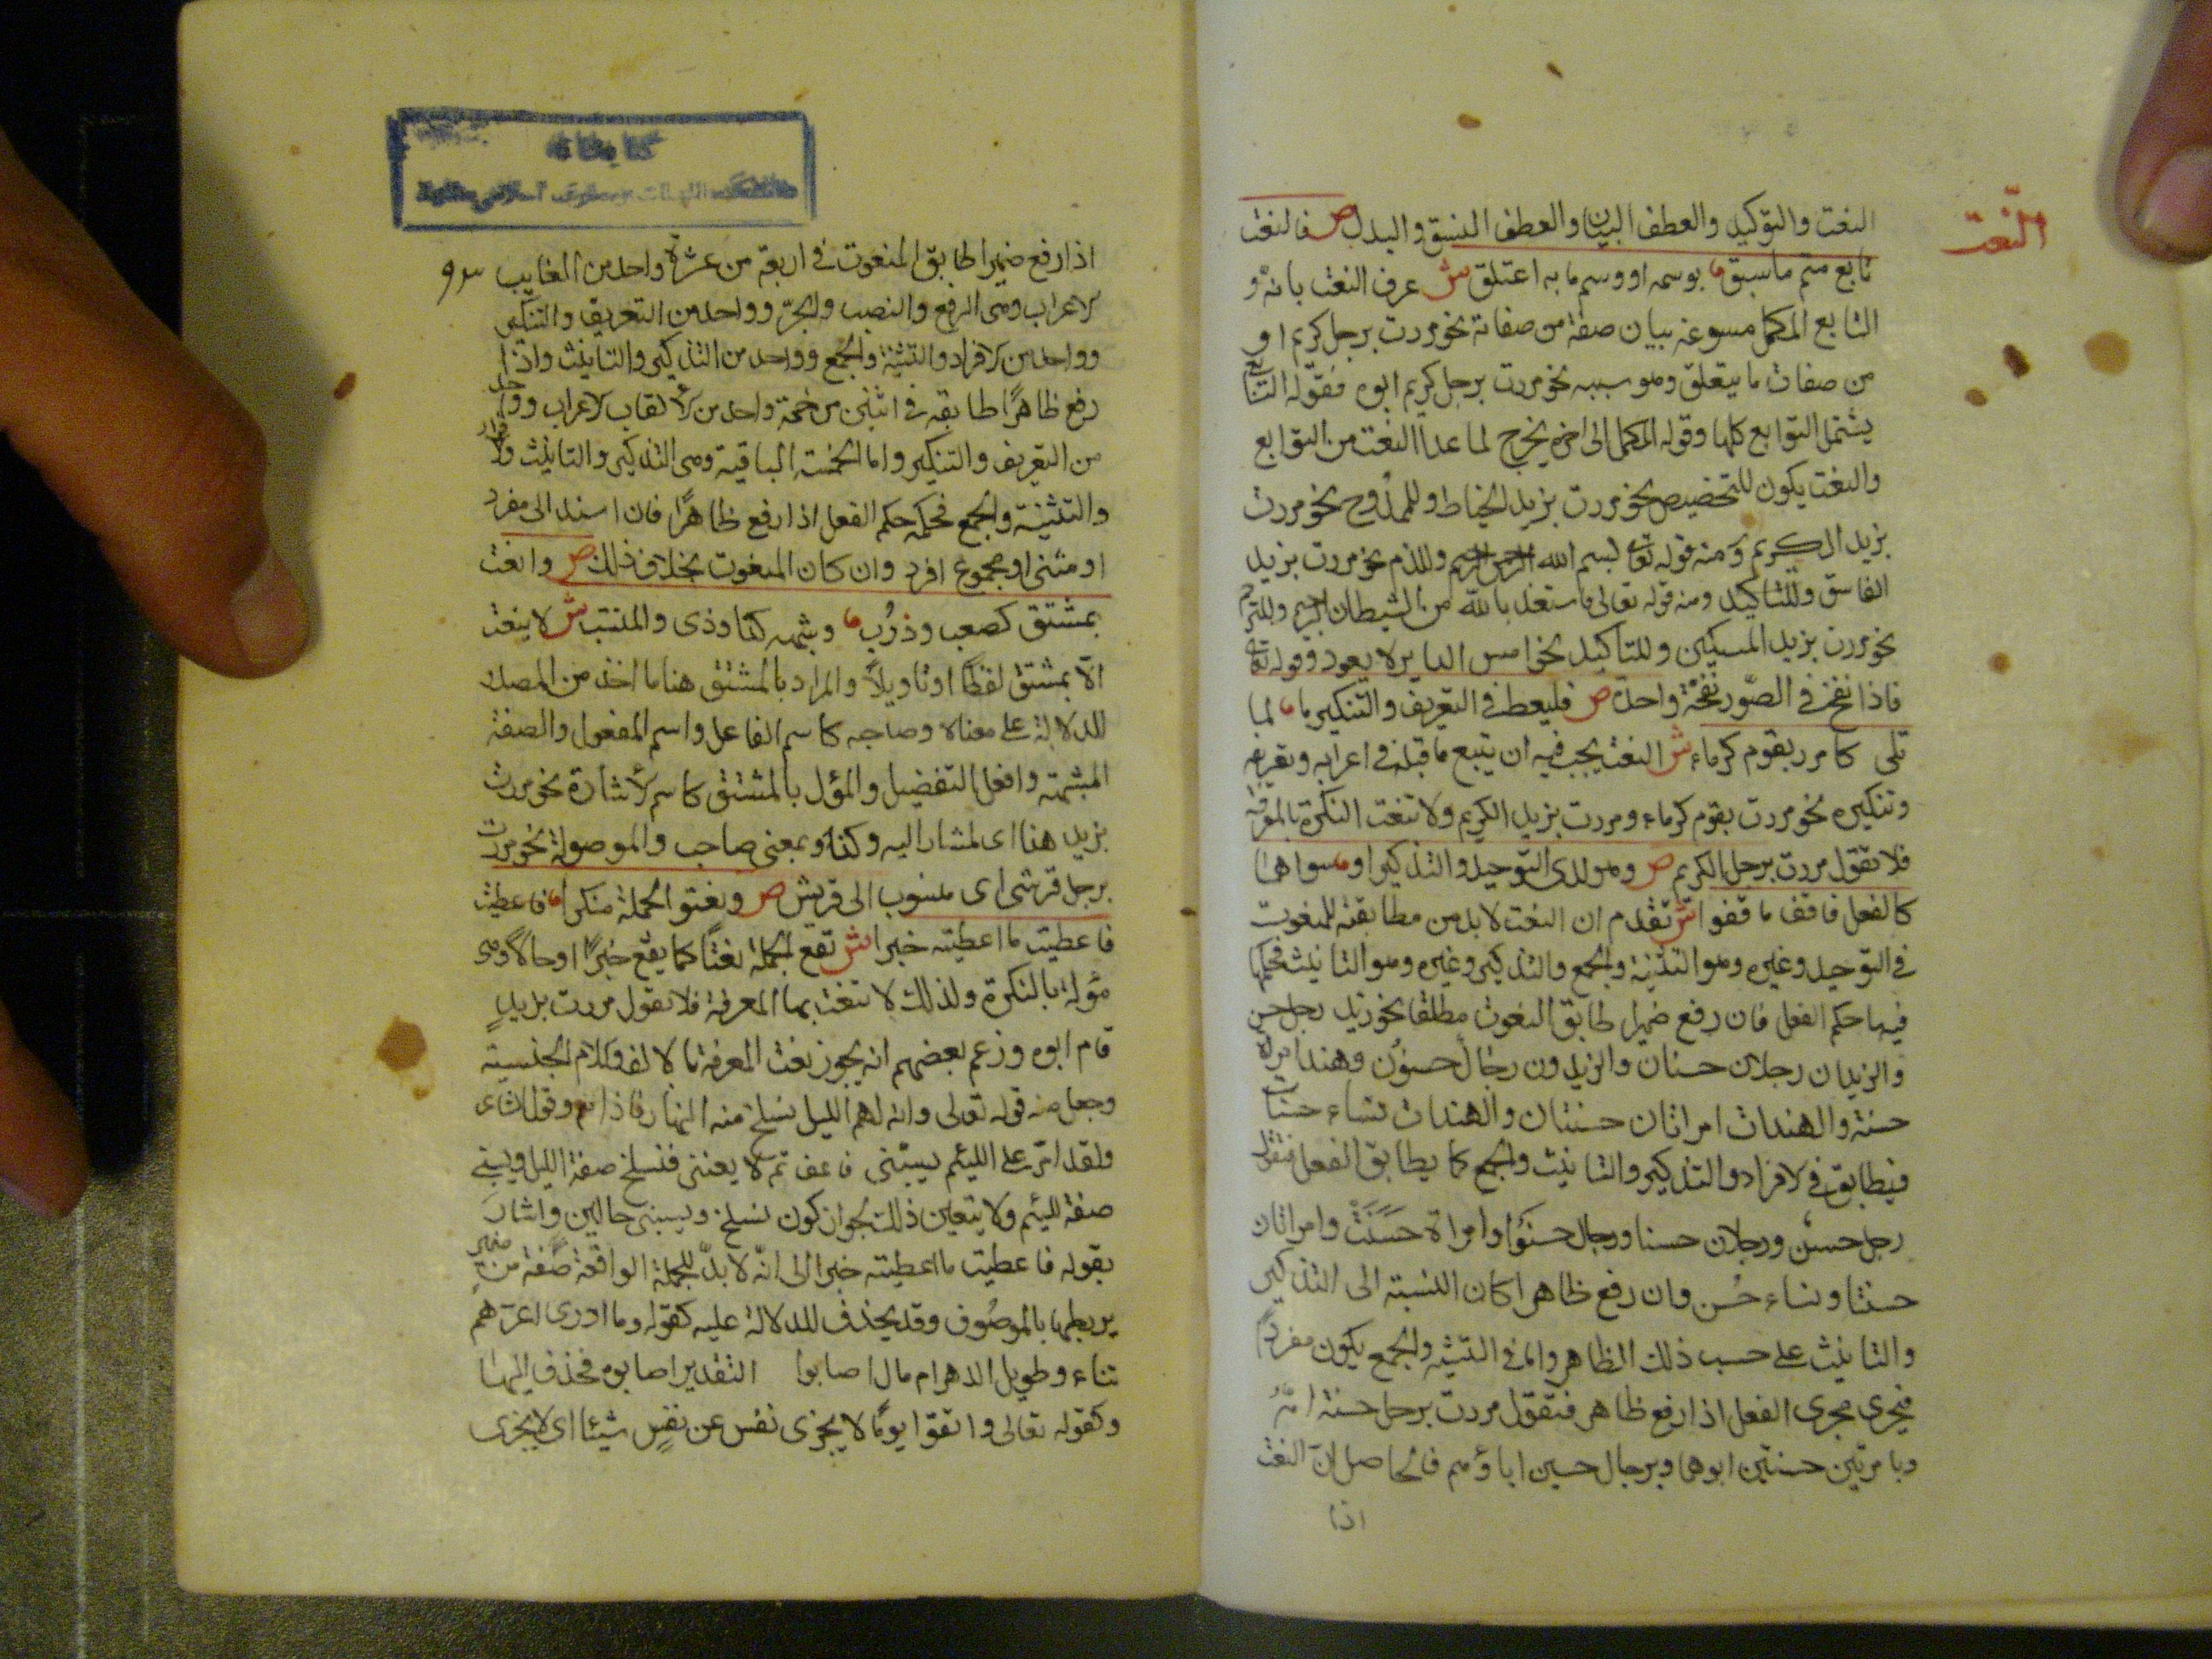 النعت
النعت والتوكيد والعطف البيان والعطف النسق والبدل ص فالنعت
تابع متم ما سبق بوسمه او وسم ما به اعتلق ش عرف النعت بانه
التابع المكمل متبوعه ببيان صفة من صفاته نحو مررت برجل كريم او
من صفات ما يتعلق وهو سببيه نحو مررت برجل كريم ابوه فقوله التابع
يشتمل التوابع كلها وقوله المكمل الى اخره يخرج لما عدا النعت من التوابع
والنعت يكون للتخصيص نحو مررت بزيد الخياط وللمدح نحو مررت
بزيد الكريم ومنه قوله تع بسم الله الرحمن الرحيم وللذم نحو مررت بزيد
الفاسق وللتاكيد ومنه قوله تعالى فاستعذ بالله من الشيطان الرجيم وللترحم
نحو مررت بزيد المسكين وللتاكيد نحو امس الدابر لا يعود وقوله تع
فاذا نفخ في الصور نفخة واحدة ص فليعط في التعريف والتنكير ما لما
تلى كامرر بقوم كرماء ش النعت يجب فيه ان يتبع ما قبله في اعرابه وتعريفه
وتنكيره نحو مررت بقوم كرماء ومررت بزيد الكريم ولا تنعت النكرة بالمعرفة
فلا تقول مررت برجل الكريم ص وهو لدى التوحيد والتذكير او سواهما
كالفعل فاقف ما قفوا ش تقدم ان النعت لا بد من مطابقته للمنعوت
في التوحيد وغيره وهو التثنية والجمع والتذكير وغيره وهو التانيث فحكمها
فيها حكم الفعل فان رفع ضميرا طابق المنعوت مطلقا نحو زيد رجل حسن
والزيدان رجلان حسنان والزيدون رجال حسنون وهند امراة
حسنة والهندان امراتان حسنتان والهندات نساء حسنات
فيطابق في الافراد والتذكير والتانيث والجمع كما يطابق الفعل فتقول
رجل حسن ورجلان حسنا ورجال حسنوا وامراة حسنت وامراتان
حسنتا ونساء حسن وان رفع ظاهرا كان النسبة الى التذكير
والتانيث على حسب ذلك الظاهر واما في التثنية والجمع يكون مفردا
فيجرى مجرى الفعل اذا رفع ظاهر فتقول مررت برجل حسنة امه
وبامرتين حسنتين ابوهما وبرجال حسين اباؤهم فالحاصل ان النعت
اذا
كتابخانه
دانشكده الهيات ومعارف اسلامى مشهد
٩٣
اذا رفع ضميرا طابق المنعوت في اربعة من عشرة واحد من القاب
الاعراب وهي الرفع والنصب والجر وواحد من التعريف والتنكير
وواحد من الافراد والتثنية والجمع وواحد من التذكير والتانيث واذا
رفع ظاهرا طابقه في اثنين من خمسة واحد من الالقاب الاعراب وواحد
من التعريف والتنكير واما الخمسة الباقية وهي التذكير والتانيث والافراد
والتثنية والجمع فحكمه حكم الفعل اذا رفع ظاهرا فان اسند الى مفرد
او مثنى او مجموع افرد وان كان المنعوت بخلاف ذلك ص وانعت
بمشتق كصعب وذرب وشبهه كذا وذى والمنتسب ش لا ينعت
الا بمشتق لفظا او تاويلا والمراد بالمشتق هنا ما اخذ من المصدر
للدلالة على معناه وصاحبه كاسم الفاعل واسم المفعول والصفة
المشبهة وافعل التفضيل والمؤل بالمشتق كاسم الاشارة نحو مررت
بزيد هذا اى المشار اليه وكذا ذو بمعنى صاحب والموصولة نحو مررت
برجل قرشى اى منسوب الى قريش ص ونعتوا بجملة منكرا فاعطيت
فاعطيت ما اعطيته خبرا ش تقع الجملة نعتا كما يقع خبرا او حالا وهي
مؤلة بالنكرة ولذلك لا تنعت بها المعرفة فلا تقول مررت بزيد
قام ابوه وزعم بعضهم انه يجوز نعت المعرفة بالالف واللام الجنسية
وجعل منه قوله تعالى واية لهم الليل نسلخ منه النهار فاذا هم وقول الشاعر
ولقد امر على اللئيم يسبني فاعف ثم لا يعنني فنسلخ صفة الليل ويسبني
صفة للئيم ولا يتعين ذلك لجواز كون نسلخ ويسبني حالين واشار
بقوله فاعطيت ما اعطيته خبرا الى انه لا بد للجملة الواقعة صفة من ضمير
يربطها بالموصوف وقد يحذف للدلالة عليه كقوله وما ادرى اغيرهم
تناء وطويل الدهر ام مال اصابوا التقدير اصابوه فحذف الهاء
وكقوله تعالى واتقوا يوما لا يجزى نفس عن نفس شيئا اى لا يجزى